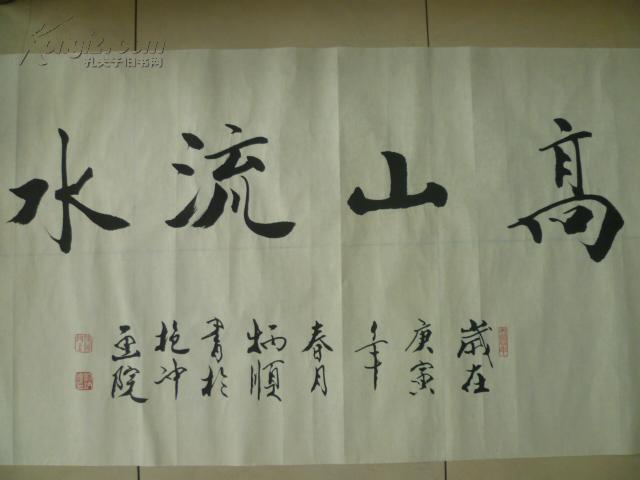 高山流水
歲在
庚寅
年
春月
炳順
書於
艳冲
画院
Kongfz.com
孔夫子旧书网